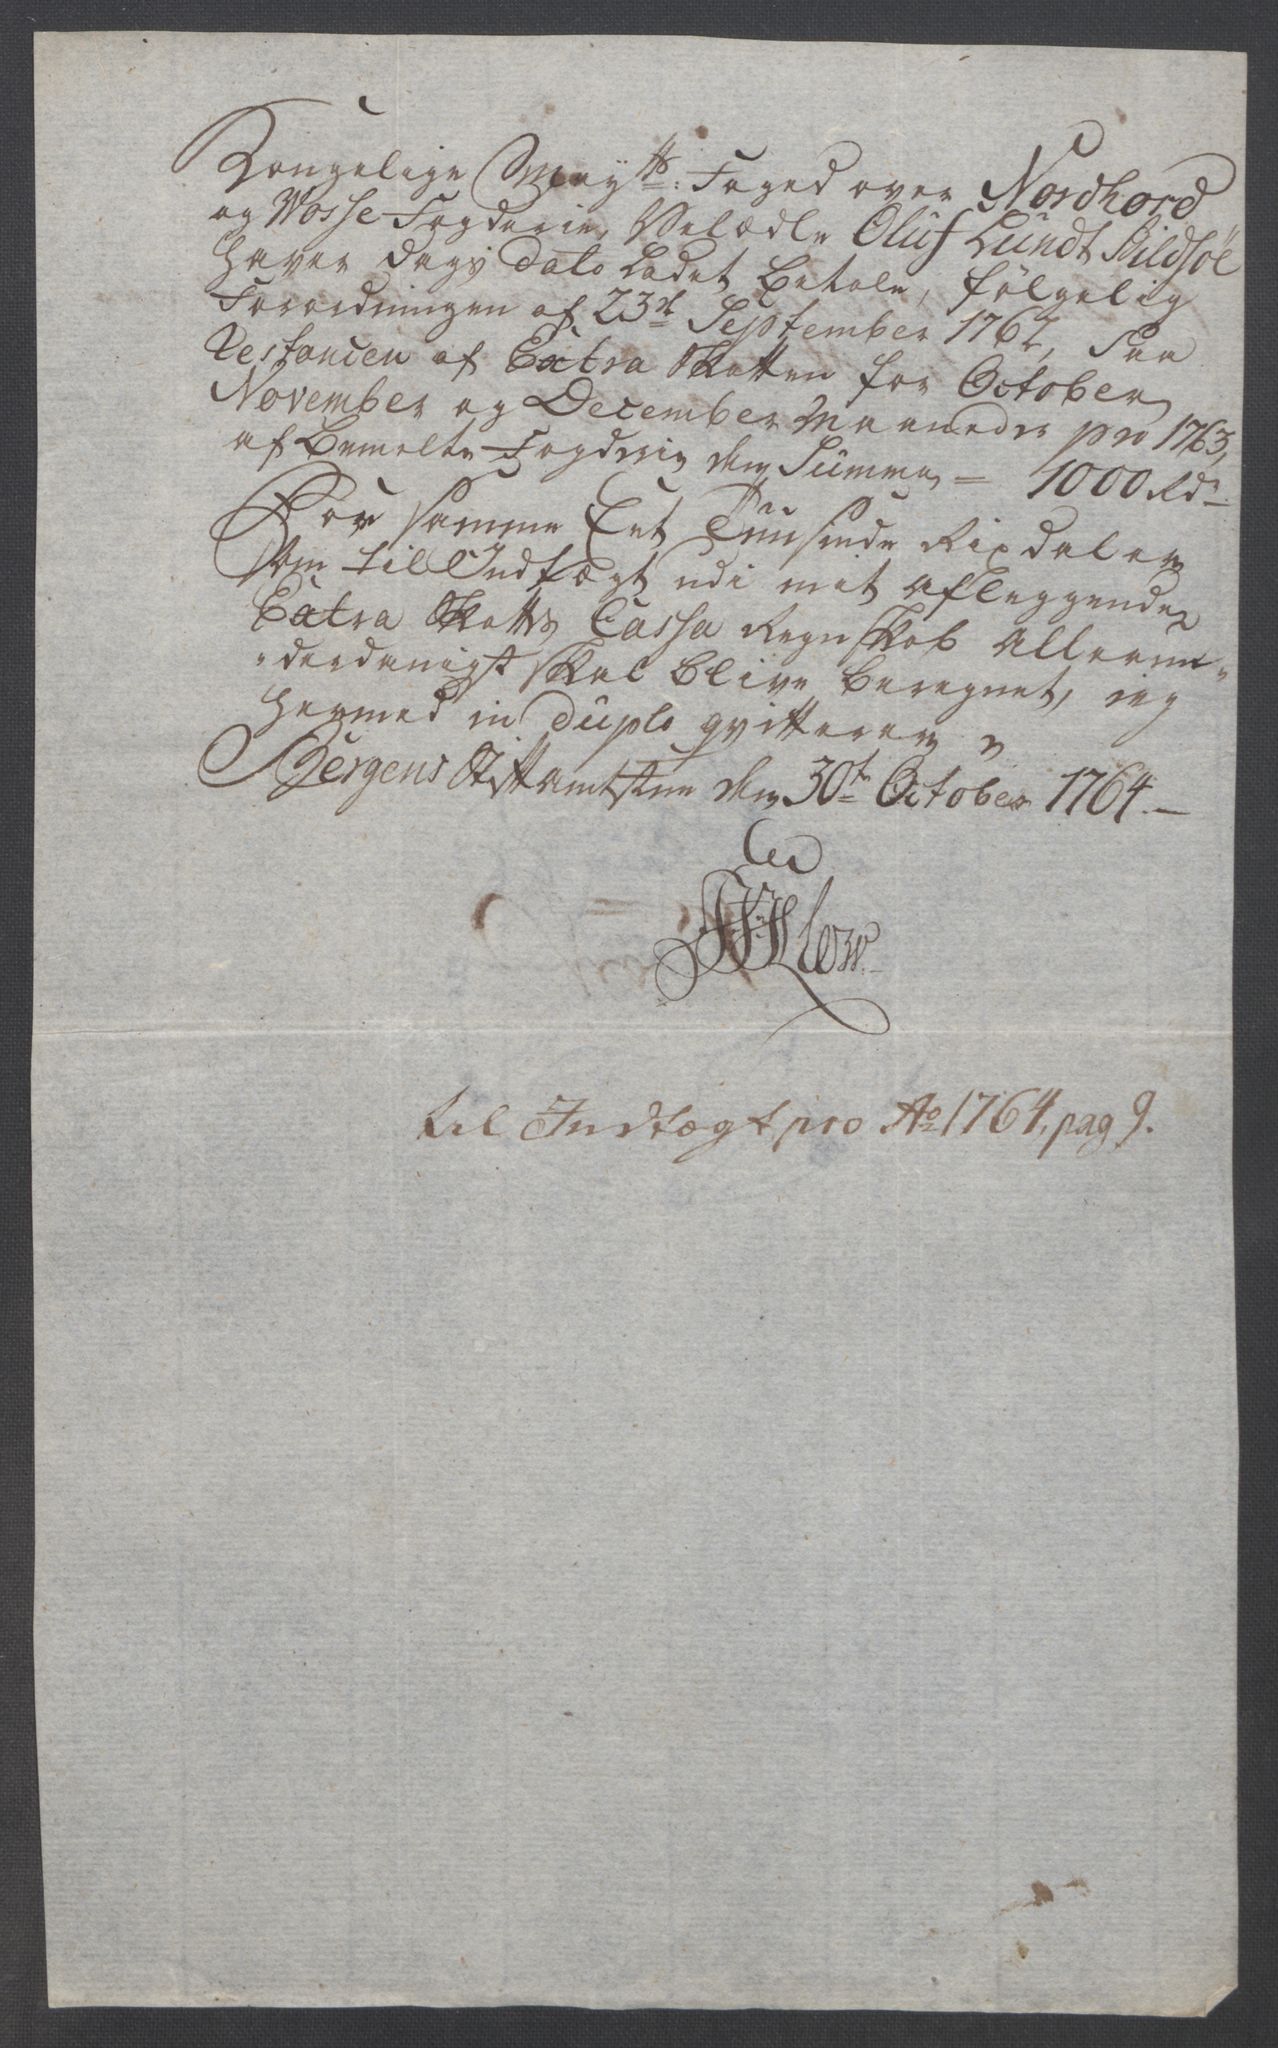 Kongelige Mayts: Foged over Nordhord
og Vosse Fogderie, Velædle Oluf Lundt Bildsöe
Haver dags dato Ladet betale, fölgelig
Forordningen af 23de September 1762, Paa
Restancen af Extra Skatten for October,
November og December Maaneder pro 1763,
af bemelte Fogderie den Summa = 1000 Rdr
For samme Eet Tuusinde Rixdaler
som til Indtægt udi mit aflæggende
Extra Skatts Cassa Regnskab allerun-
derdanigst skal blive beregnet, ieg
hermed in duplo qvitterer
Bergens Stiftamtstue den 30te October 1764.
til Indtægt pro Ao 1764, pag 9.